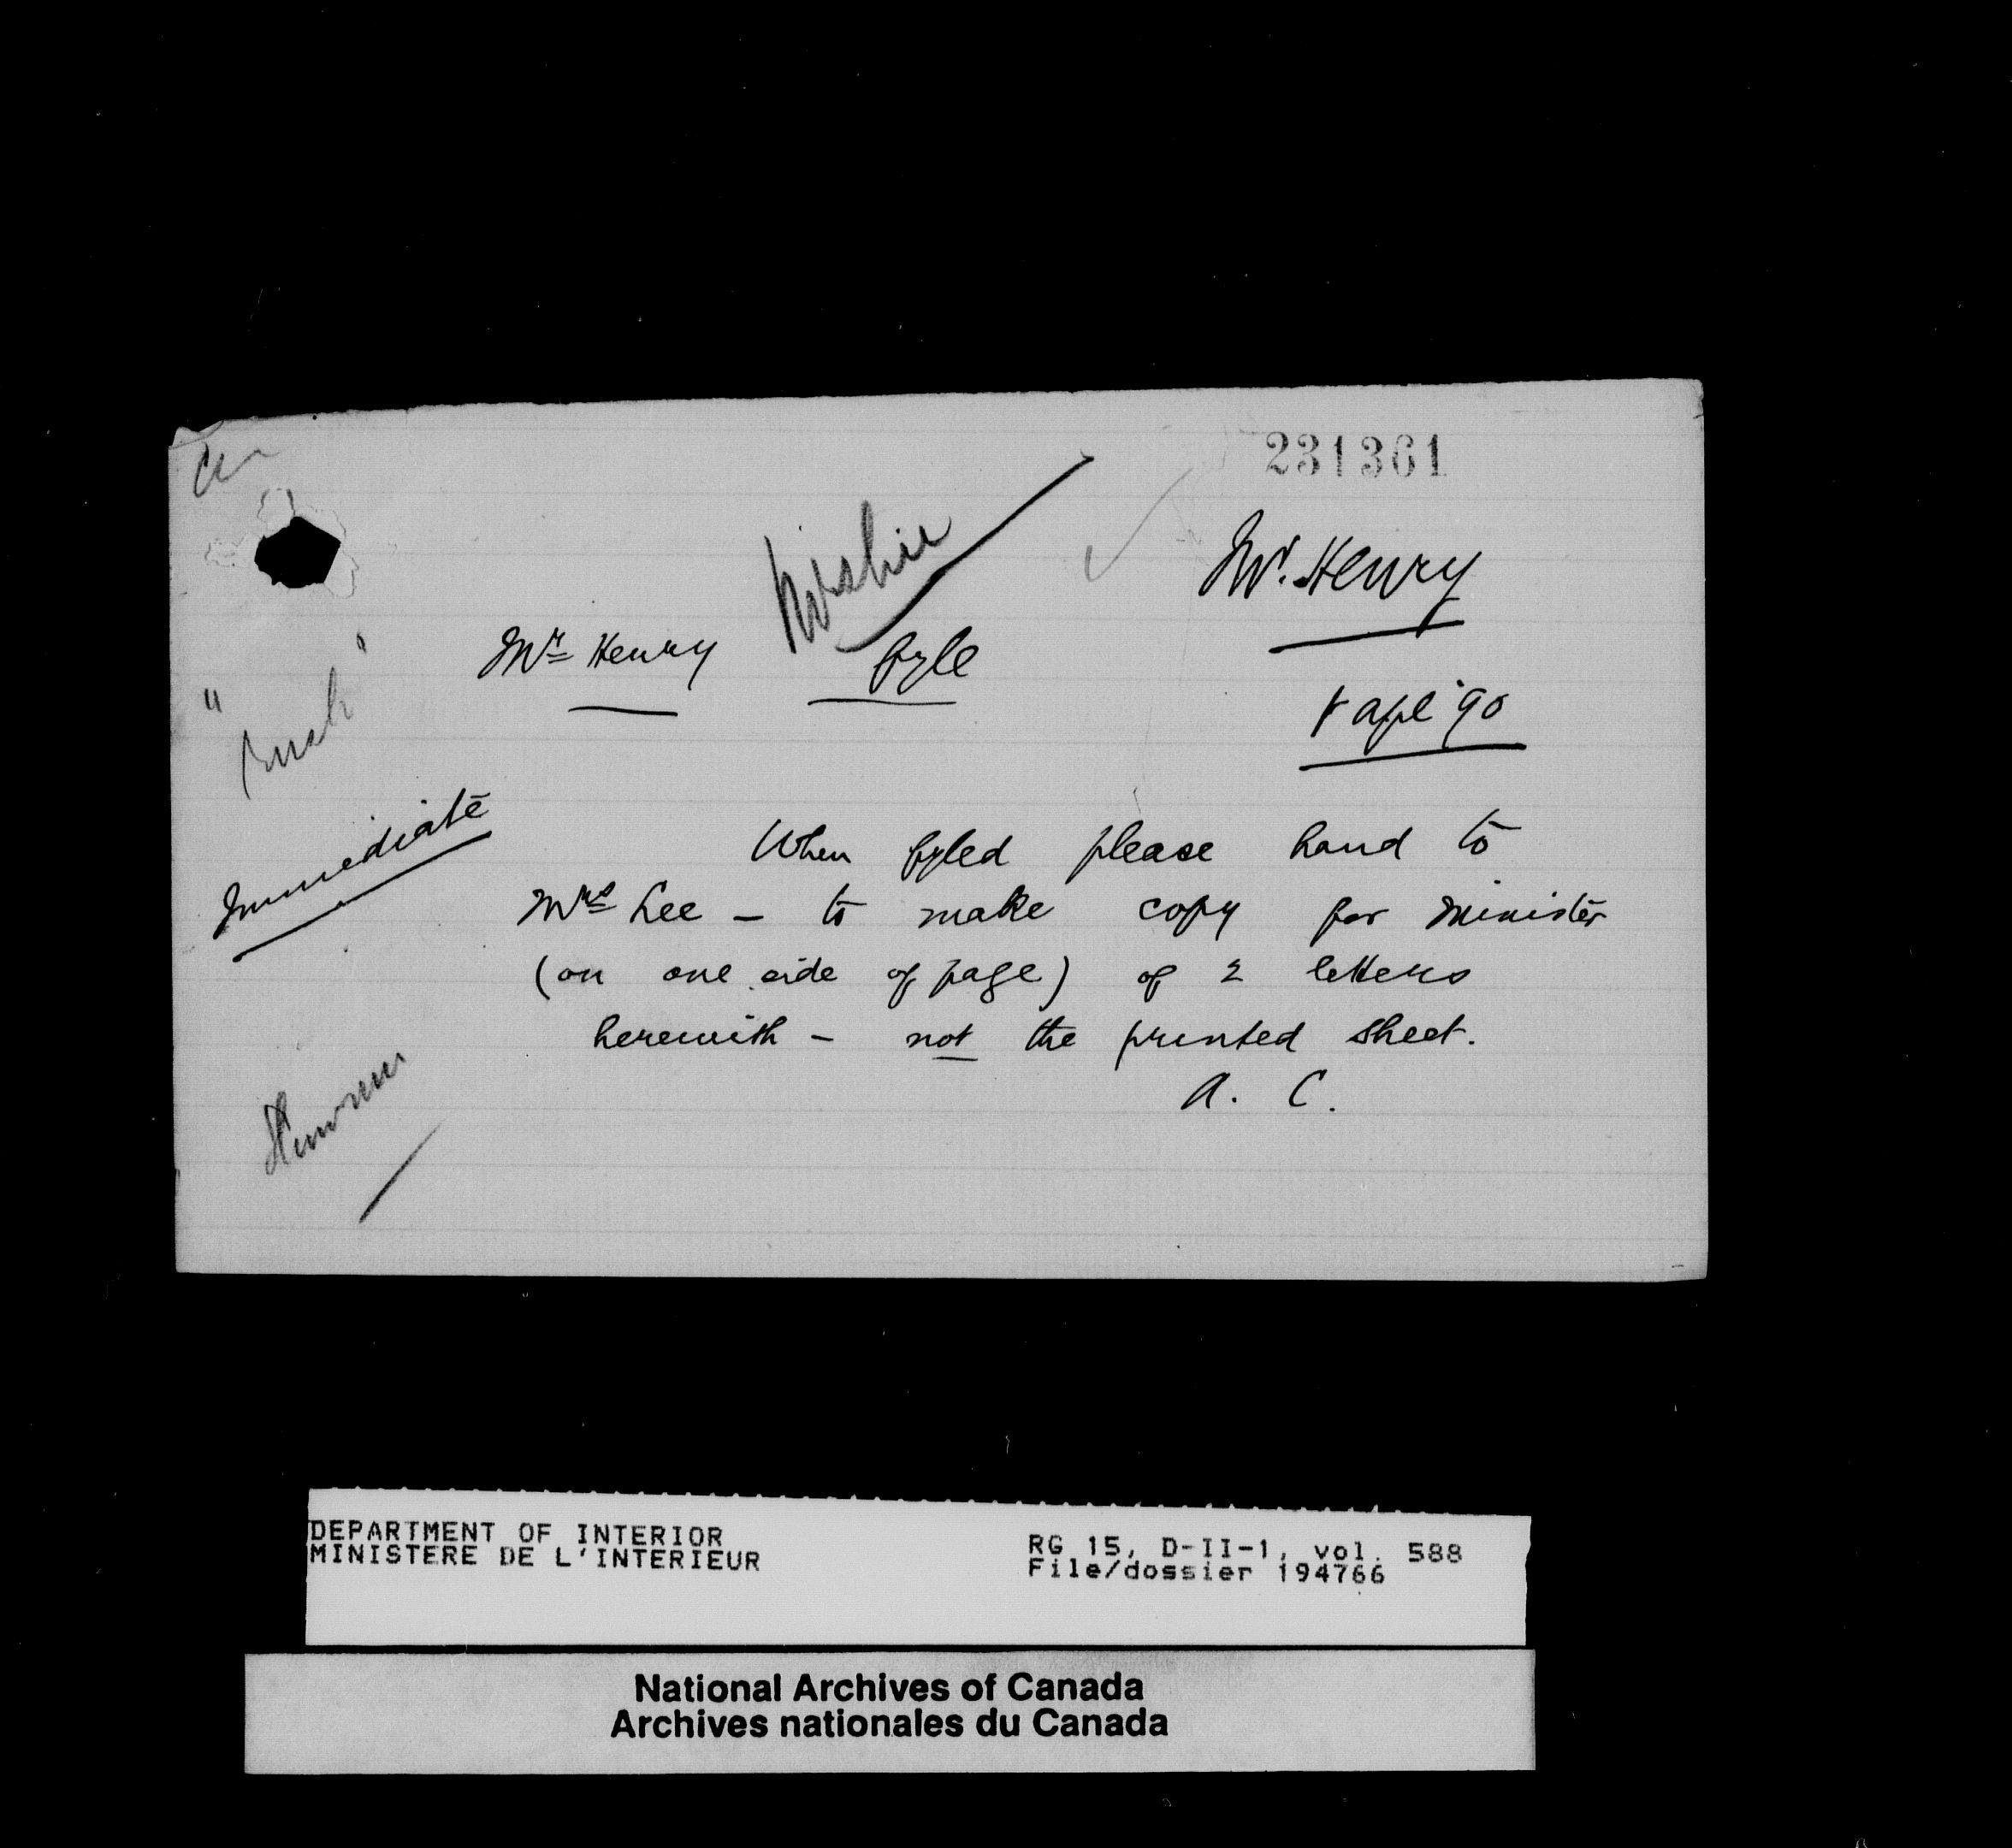 231361
Mr. Henry
Mr Henry fyle
8 apl '90
"Rush"
Immediate
When fyled please hand to
Mrs Lee - to make copy for Minister
(on one side of page) of 2 letters
herewith - not the printed sheet.
A. C.
DEPARTMENT OF INTERIOR
MINISTERE DE L'INTERIEUR
RG 15, D-II-1, vol. 588
File/dossier 194766
National Archives of Canada
Archives nationales du Canada